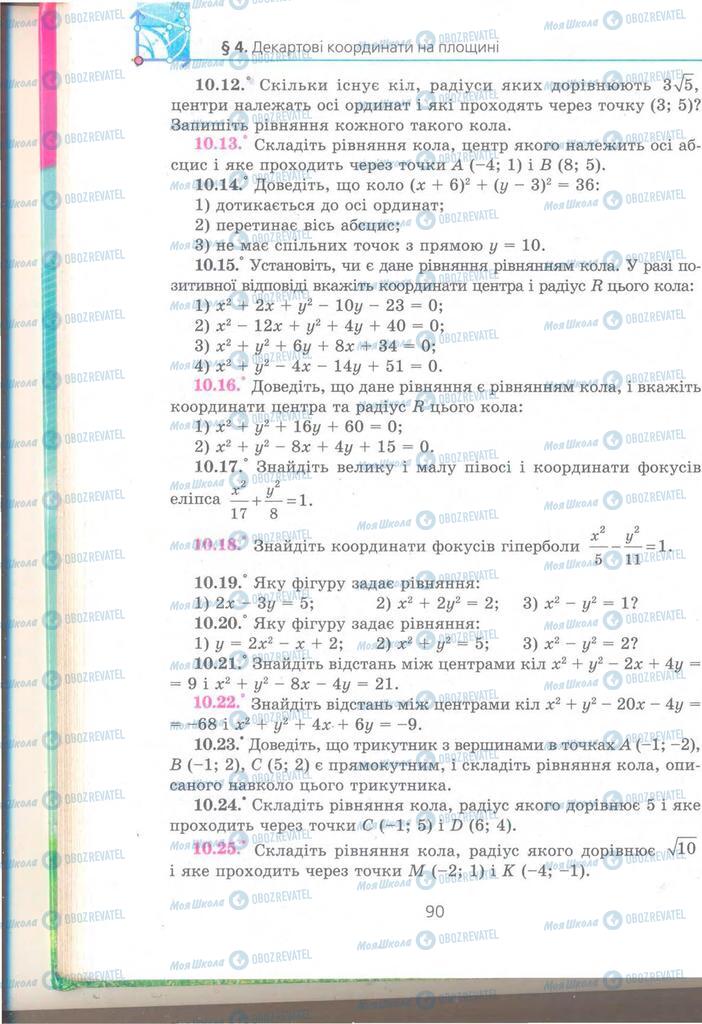 § 4. Декартові координати на площині
10.12.° Скільки існує кіл, радіуси яких дорівнюють 3√5,
центри належать осі ординат і які проходять через точку (3; 5)?
Запишіть рівняння кожного такого кола.
10.13.° Складіть рівняння кола, центр якого належить осі аб-
сцис і яке проходить через точки A (−4; 1) і B (8; 5).
10.14.° Доведіть, що коло (x + 6)² + (y − 3)² = 36:
1) дотикається до осі ординат;
2) перетинає вісь абсцис;
3) не має спільних точок з прямою y = 10.
10.15.° Установіть, чи є дане рівняння рівнянням кола. У разі по-
зитивної відповіді вкажіть координати центра і радіус R цього кола:
1) x² + 2x + y² − 10y − 23 = 0;
2) x² − 12x + y² + 4y + 40 = 0;
3) x² + y² + 6y + 8x + 34 = 0;
4) x² + y² − 4x − 14y + 51 = 0.
10.16.° Доведіть, що дане рівняння є рівнянням кола, і вкажіть
координати центра та радіус R цього кола:
1) x² + y² + 16y + 60 = 0;
2) x² + y² − 8x + 4y + 15 = 0.
10.17.° Знайдіть велику і малу півосі і координати фокусів
еліпса x²/17 + y²/8 = 1.
10.18.° Знайдіть координати фокусів гіперболи x²/5 − y²/11 = 1.
10.19.° Яку фігуру задає рівняння:
1) 2x − 3y = 5; 2) x² + 2y² = 2; 3) x² − y² = 1?
10.20.° Яку фігуру задає рівняння:
1) y = 2x² − x + 2; 2) x² + y² = 5; 3) x² − y² = 2?
10.21.° Знайдіть відстань між центрами кіл x² + y² − 2x + 4y =
= 9 і x² + y² − 8x − 4y = 21.
10.22.° Знайдіть відстань між центрами кіл x² + y² − 20x − 4y =
= −68 і x² + y² + 4x + 6y = −9.
10.23.• Доведіть, що трикутник з вершинами в точках A (−1; −2),
B (−1; 2), C (5; 2) є прямокутним, і складіть рівняння кола, опи-
саного навколо цього трикутника.
10.24.• Складіть рівняння кола, радіус якого дорівнює 5 і яке
проходить через точки C (−1; 5) і D (6; 4).
10.25.• Складіть рівняння кола, радіус якого дорівнює √10
і яке проходить через точки M (−2; 1) і K (−4; −1).
90